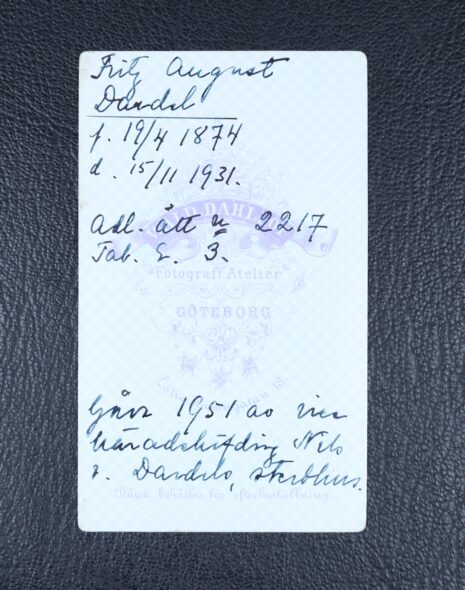 Fritz August
Dardel
f. 19/4 1874
d. 15/11 1931.
DAHL
Adl. ätt n 2217
Tab. 3.
Fotografi Atelier
GÖTEBORG
18.
Gåva 1951 av vice
häradshövding Nils
v. Dardels, sterbhus.
Plåten behålles för efterbeställning.